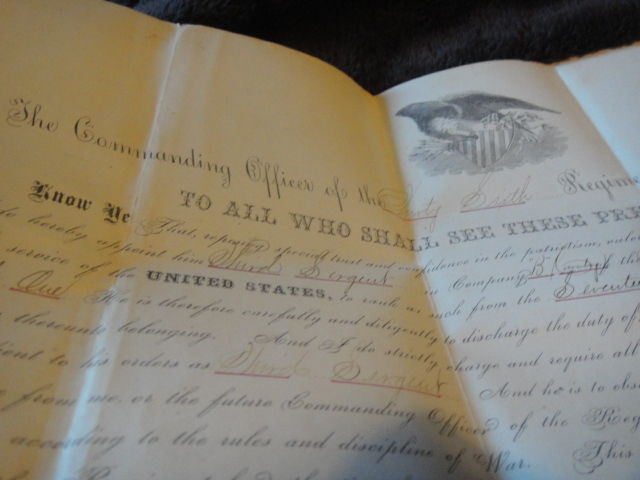 The Commanding Officer of the Regime
TO ALL WHO SHALL SEE THESE PRE
Know Ye That, reposing special trust and confidence in the patriotism, valor
do hereby appoint him Third Sergent in Company B
service of the UNITED STATES, to rank as such from the Seventee
One He is therefore carefully and diligently to discharge the duty of
thereunto belonging. And I do strictly charge and require all
ient to his orders as Third Sergent And he is to obse
from me, or the future Commanding Officer of the Reg
according to the rules and discipline of War. This